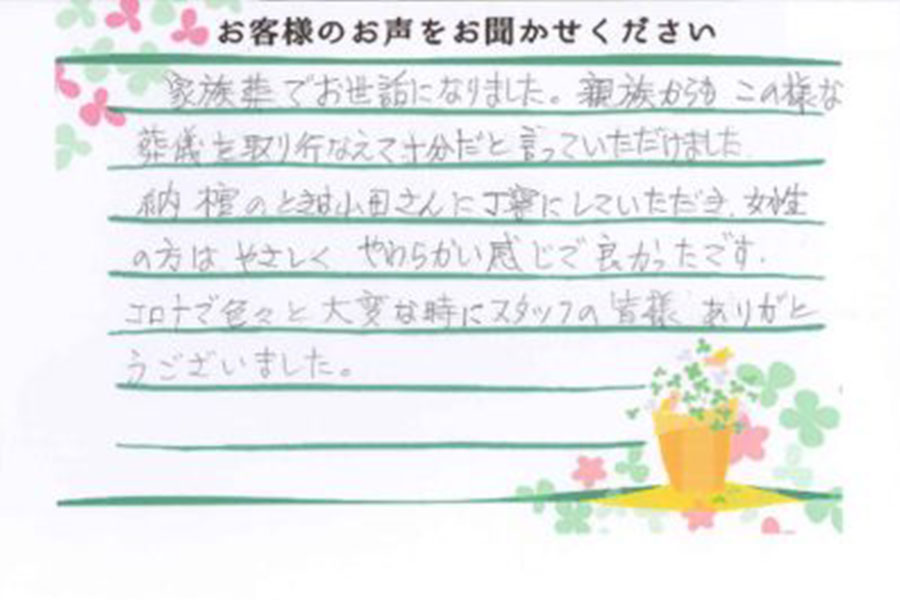 お客様のお声をお聞かせください
家族葬でお世話になりました。親族からも この様な
葬儀を取り行なえて十分だと言っていただけました
納棺のときは山田さんに丁寧にしていただき、女性
の方は やさしく やわらかい感じで良かったです.
コロナで色々と大変な時にスタッフの皆様 ありがと
うございました。